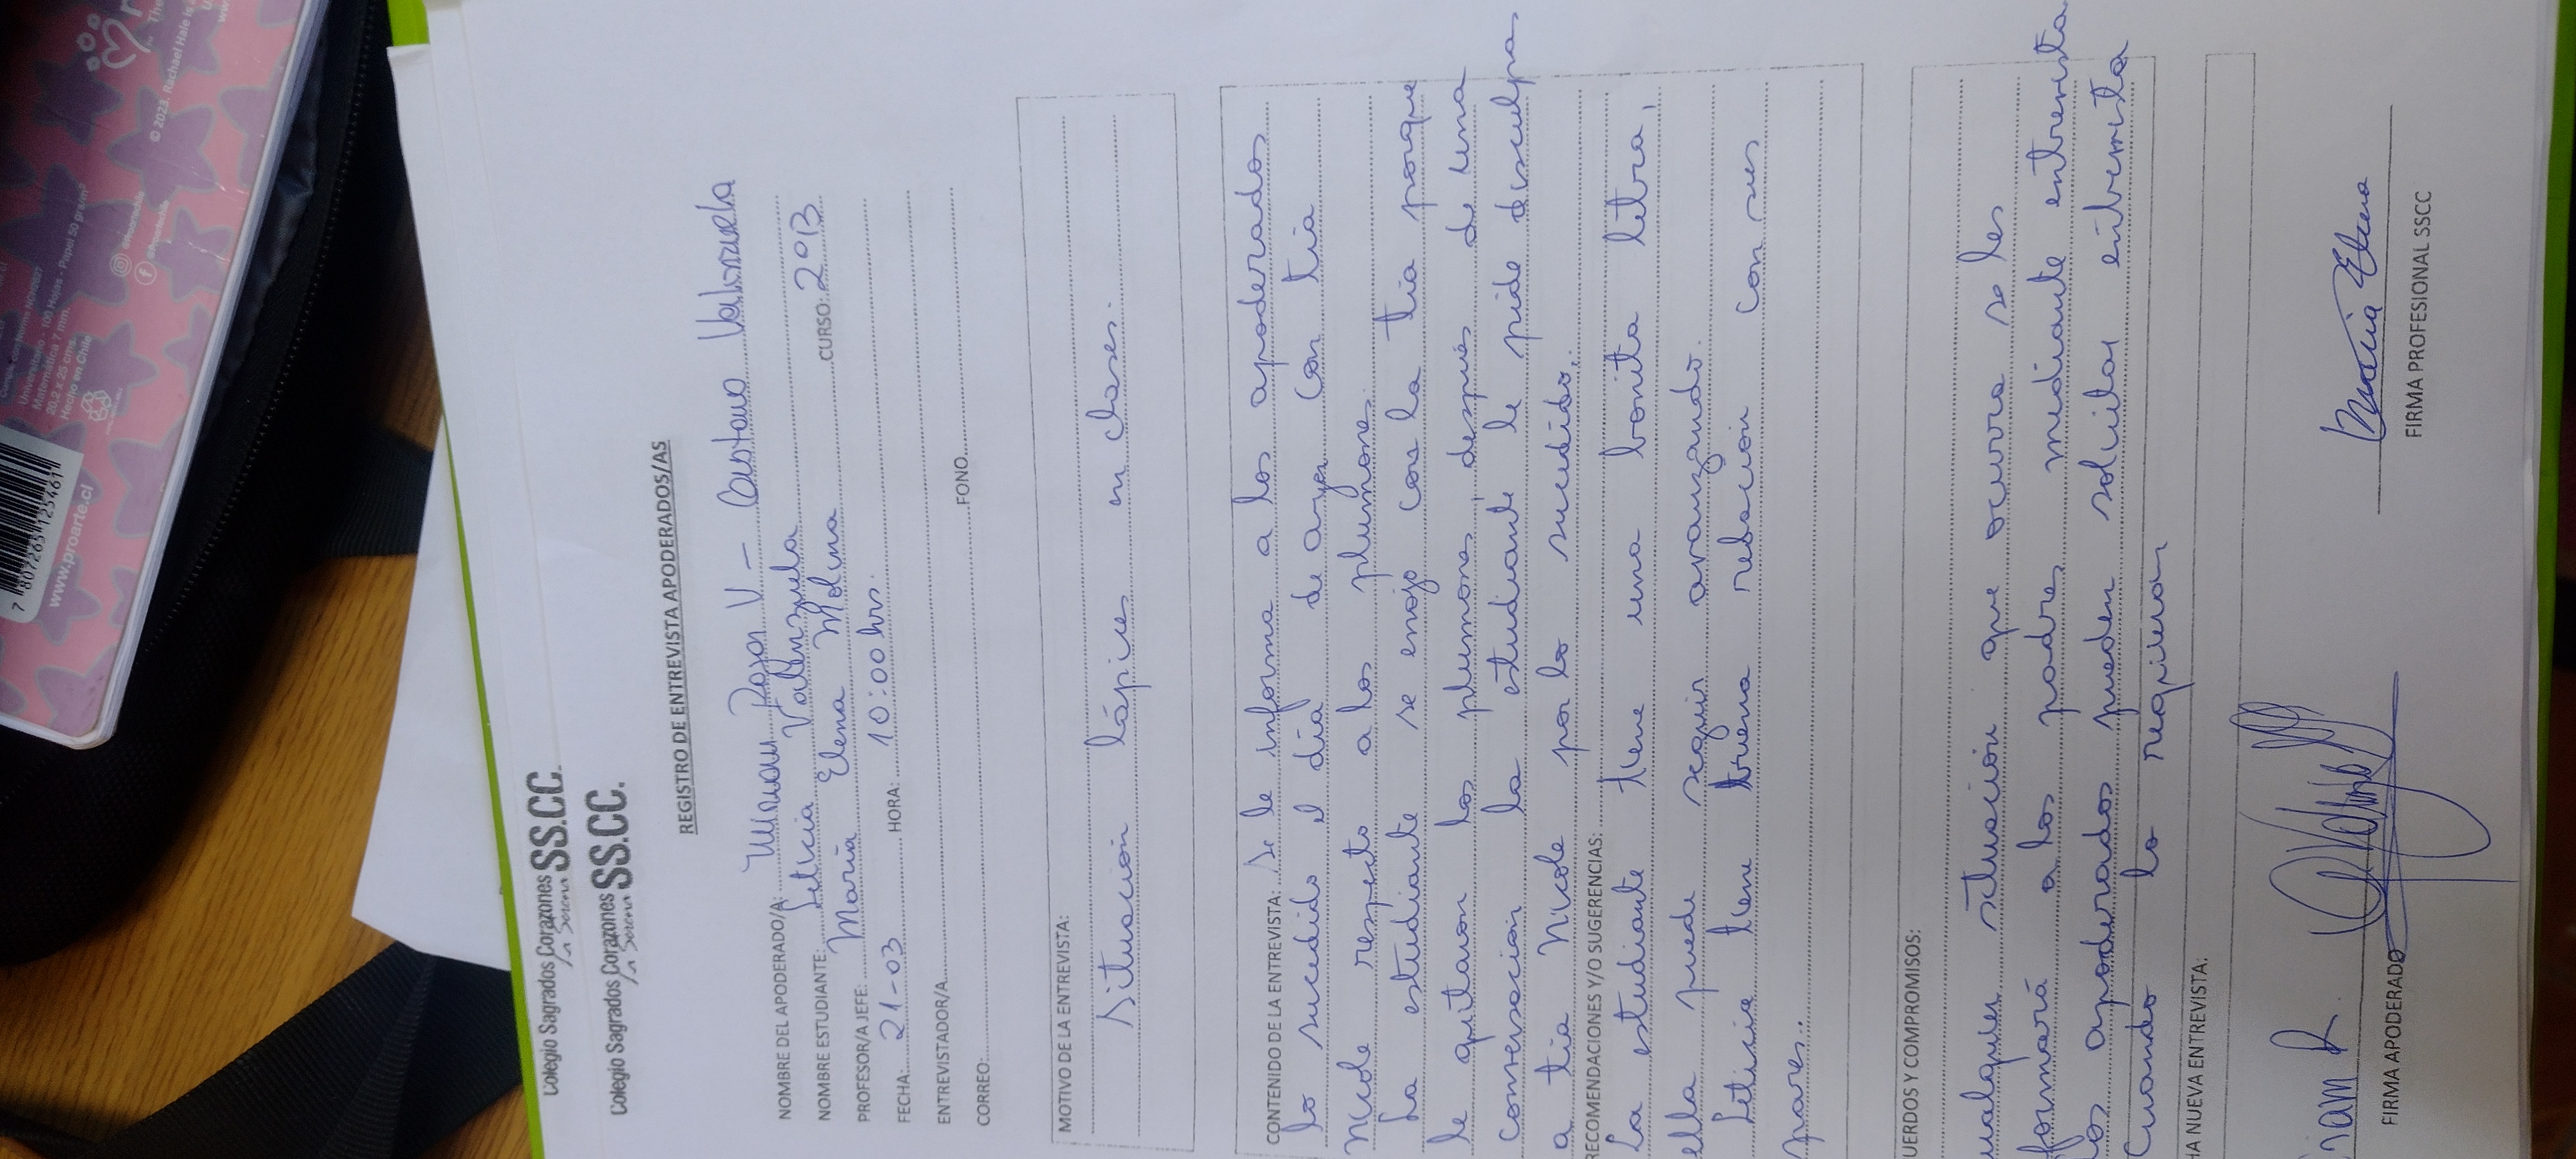 Colegio Sagrados Corazones SS.CC.
La Serena
Colegio Sagrados Corazones SS.CC.
La Serena
REGISTRO DE ENTREVISTA APODERADOS/AS
NOMBRE DEL APODERADO/A: Rojas V – Valenzuela
NOMBRE ESTUDIANTE: Leticia Valenzuela CURSO: 2°B
PROFESOR/A JEFE: María Elena Molina
FECHA: 21-03 HORA: 10:00 hrs.
ENTREVISTADOR/A
CORREO: FONO
MOTIVO DE LA ENTREVISTA:
Situación lápices en clases.
CONTENIDO DE LA ENTREVISTA: Se le informa a los apoderados
lo sucedido el día de ayer con tía
Nicole respecto a los plumones.
La estudiante se enojo con la tía porque
le quitaron los plumones, después de una
conversación la estudiante le pide disculpa
a tía Nicole por lo sucedido.
RECOMENDACIONES Y/O SUGERENCIAS:
La estudiante tiene una bonita letra,
ella puede seguir avanzando.
Leticia tiene buena relación con sus
pares.
UERDOS Y COMPROMISOS:
ualquier situación que ocurra se les
formará a los padres mediante entrevista
los apoderados pueden solicitar entrevista
cuando lo requieran
HA NUEVA ENTREVISTA:
FIRMA APODERADO
María Elena
FIRMA PROFESIONAL SSCC
7 807265 125461
www.proarte.cl
Universitario - 100 Hojas - Papel 50 grs/m²
Matemática 7 mm.
20,2 x 25 cms.
Hecho en Chile
© 2023, Rachael Hale is